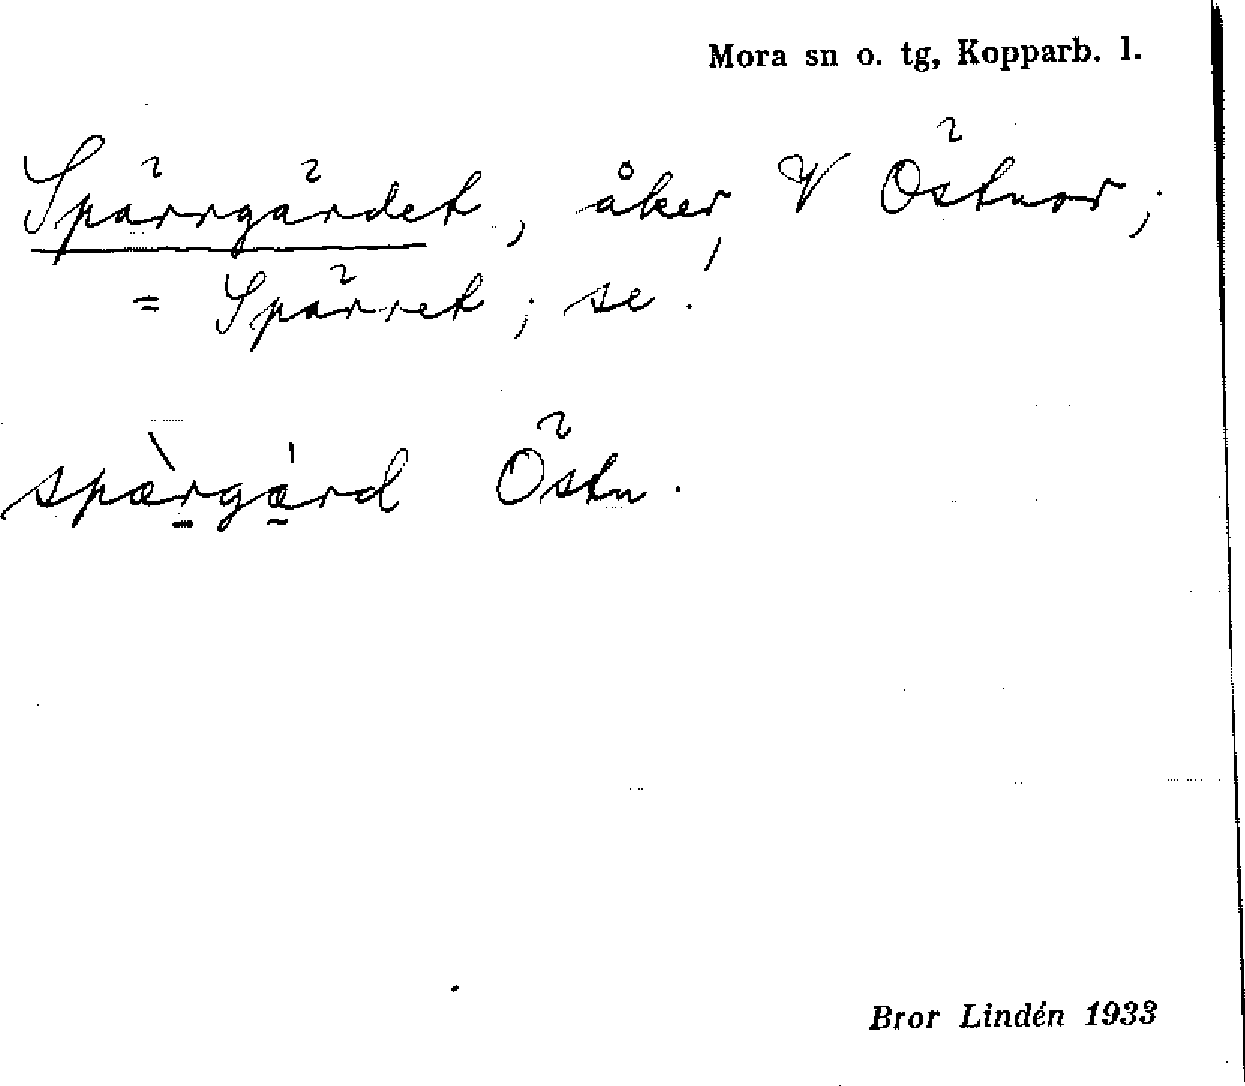 Mora sn o. tg, Kopparb. l.
Spärrgärdet, åker, V Östnor;
= Spärret; se!
spæ̀rgǽrd Östn.
Bror Lindén 1933